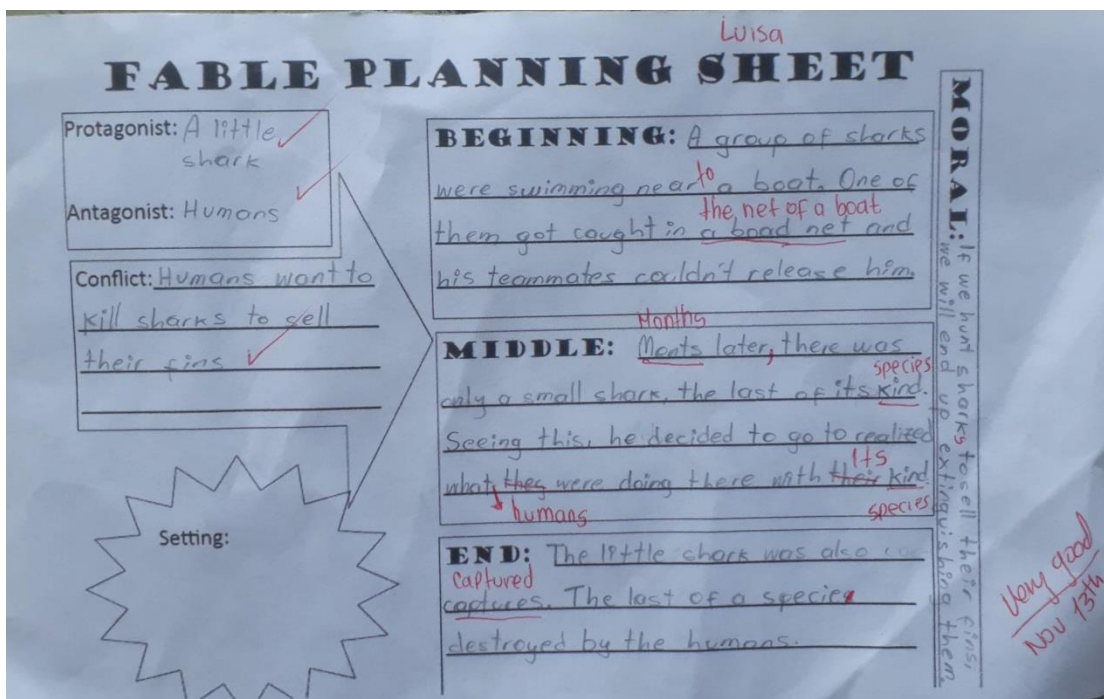 Luisa
FABLE PLANNING SHEET
Protagonist: A little
shark
Antagonist: Humans
Conflict: Humans want to
kill sharks to sell
their fins
Setting:
BEGINNING: A group of sharks
to
were swimming near a boat. One of
the net of a boat
them got caught in a boad net and
his teammates couldn't release him.
Months
MIDDLE: Monts later, there was
species
only a small shark, the last of its kind.
Seeing this, he decided to go to realized
Its
what they were doing there with their kind
humans
species
END: The little shark was also
captured
captures. The last of a species
destroyed by the humans.
MORAL: If we hunt sharks to sell their fins,
we will end up extinguishing them.
Very good
Nov 13th